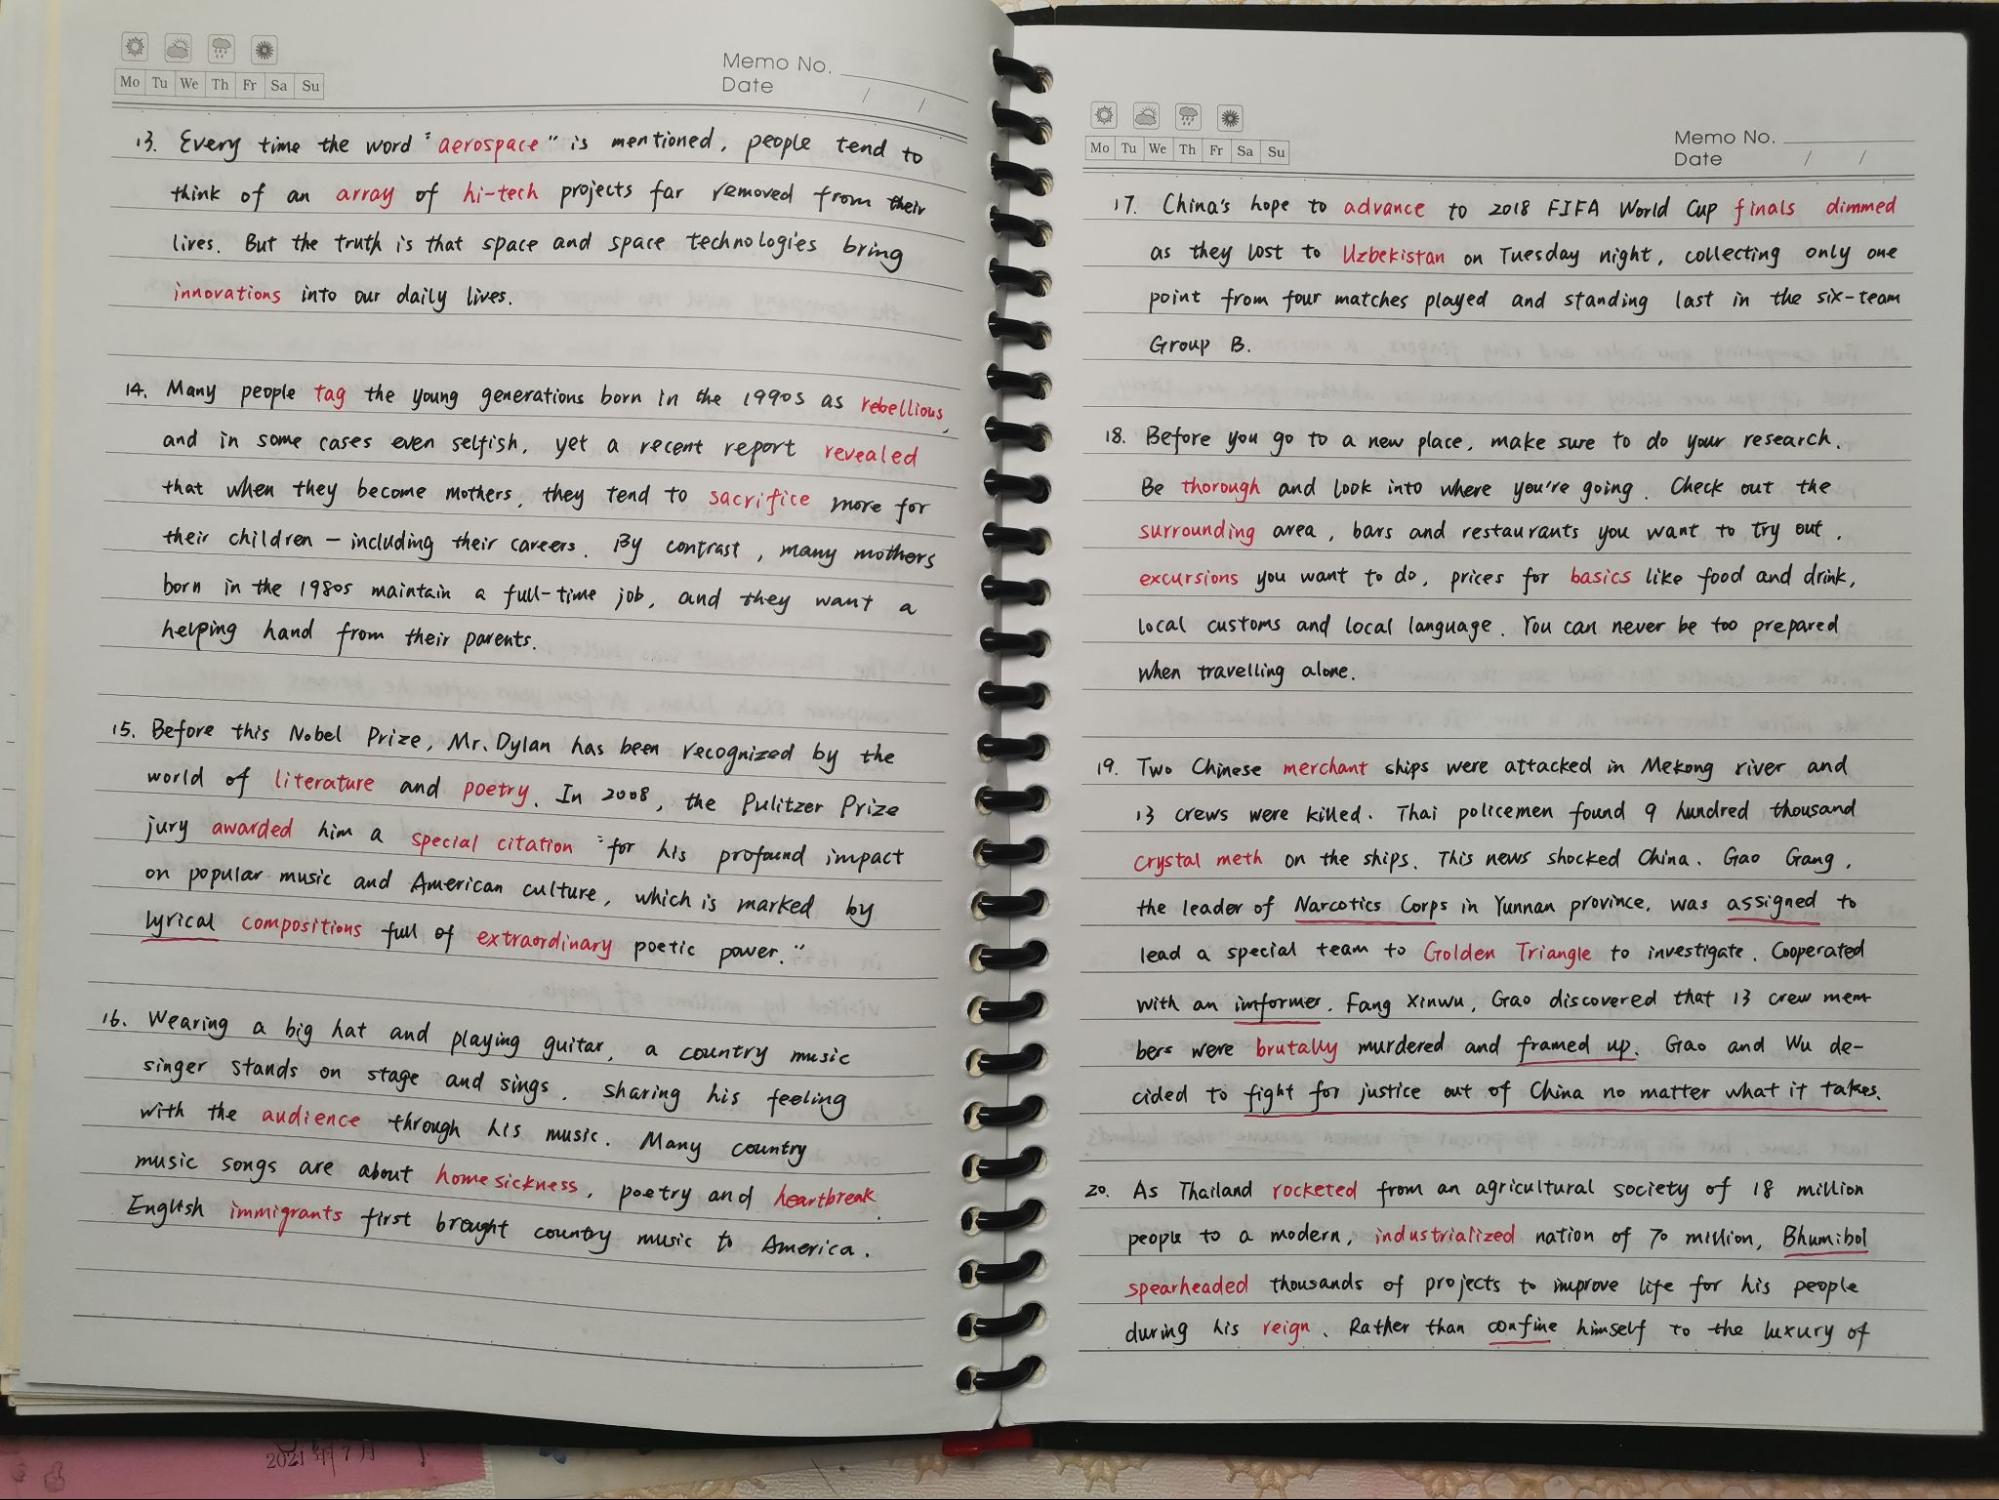 Mo Tu We Th Fr Sa Su
Memo No.
Date / /
13. Every time the word "aerospace" is mentioned, people tend to
think of an array of hi-tech projects far removed from their
lives. But the truth is that space and space technologies bring
innovations into our daily lives.
14. Many people tag the young generations born in the 1990s as rebellious,
and in some cases even selfish, yet a recent report revealed
that when they become mothers, they tend to sacrifice more for
their children — including their careers. By contrast, many mothers
born in the 1980s maintain a full-time job, and they want a
helping hand from their parents.
15. Before this Nobel Prize, Mr. Dylan has been recognized by the
world of literature and poetry. In 2008, the Pulitzer Prize
jury awarded him a special citation "for his profound impact
on popular music and American culture, which is marked by
lyrical compositions full of extraordinary poetic power."
16. Wearing a big hat and playing guitar, a country music
singer stands on stage and sings, sharing his feeling
with the audience through his music. Many country
music songs are about homesickness, poetry and heartbreak.
English immigrants first brought country music to America.
2021年7月
Mo Tu We Th Fr Sa Su
Memo No.
Date / /
17. China's hope to advance to 2018 FIFA World Cup finals dimmed
as they lost to Uzbekistan on Tuesday night, collecting only one
point from four matches played and standing last in the six-team
Group B.
18. Before you go to a new place, make sure to do your research.
Be thorough and look into where you're going. Check out the
surrounding area, bars and restaurants you want to try out,
excursions you want to do, prices for basics like food and drink,
local customs and local language. You can never be too prepared
when travelling alone.
19. Two Chinese merchant ships were attacked in Mekong river and
13 crews were killed. Thai policemen found 9 hundred thousand
crystal meth on the ships. This news shocked China. Gao Gang,
the leader of Narcotics Corps in Yunnan province, was assigned to
lead a special team to Golden Triangle to investigate. Cooperated
with an informer, Fang Xinwu, Gao discovered that 13 crew mem-
bers were brutally murdered and framed up. Gao and Wu de-
cided to fight for justice out of China no matter what it takes.
20. As Thailand rocketed from an agricultural society of 18 million
people to a modern, industrialized nation of 70 million, Bhumibol
spearheaded thousands of projects to improve life for his people
during his reign. Rather than confine himself to the luxury of